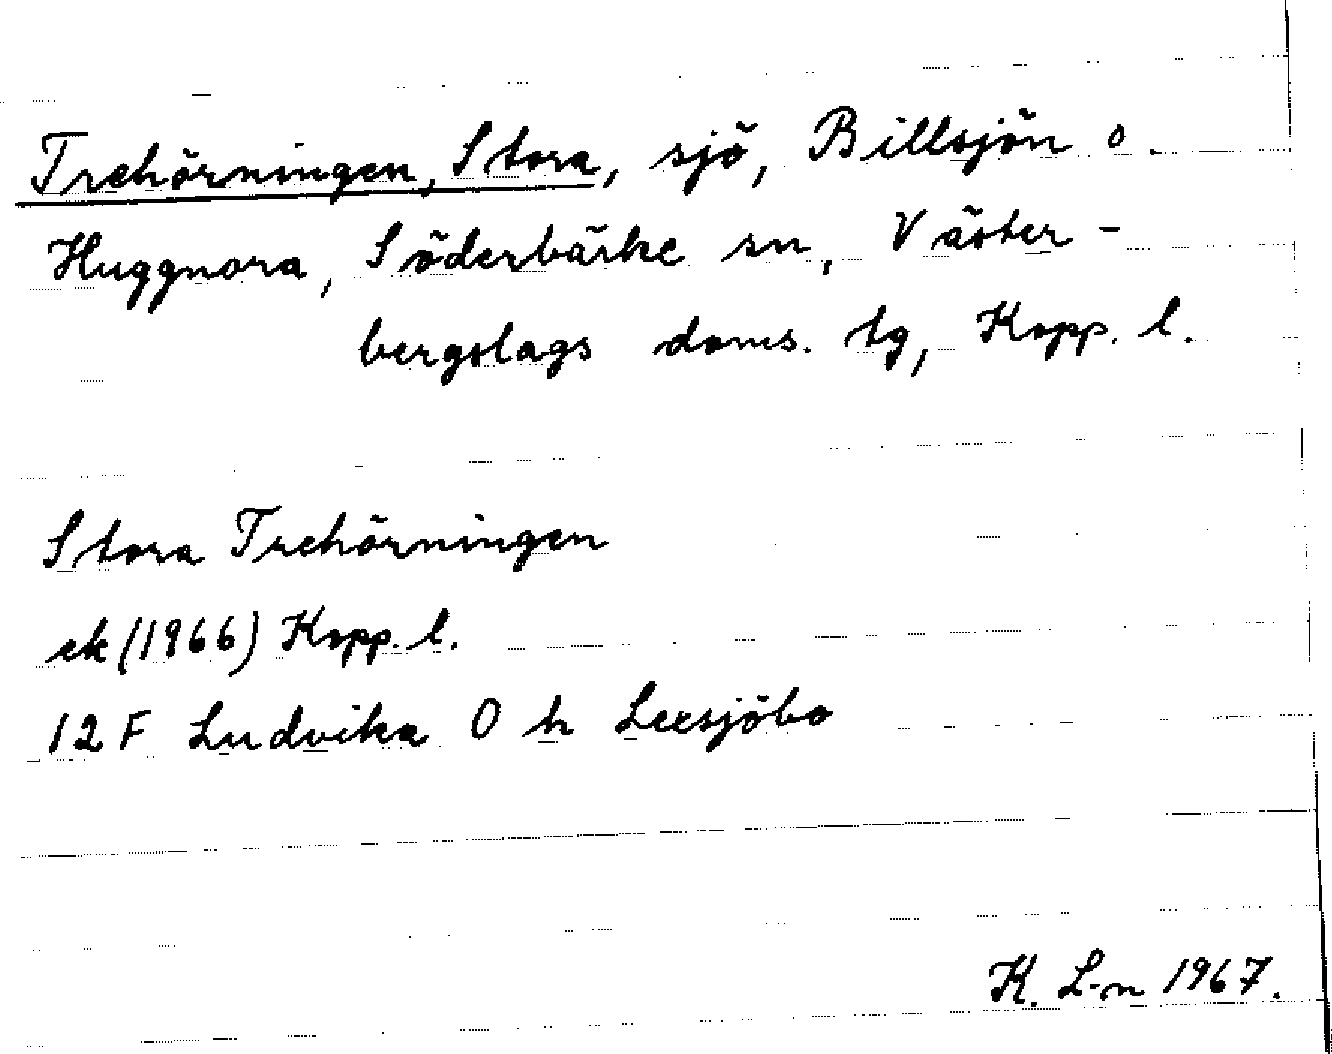 Trehörningen, Stora, sjö, Billsjön o.
Huggnora, Söderbärke sn, Väster-
bergslags doms. tg, Kopp. l.
Stora Trehörningen
ek (1966) Kopp. l.
12 F Ludvika O h Leesjöbo
K. L-n 1967.